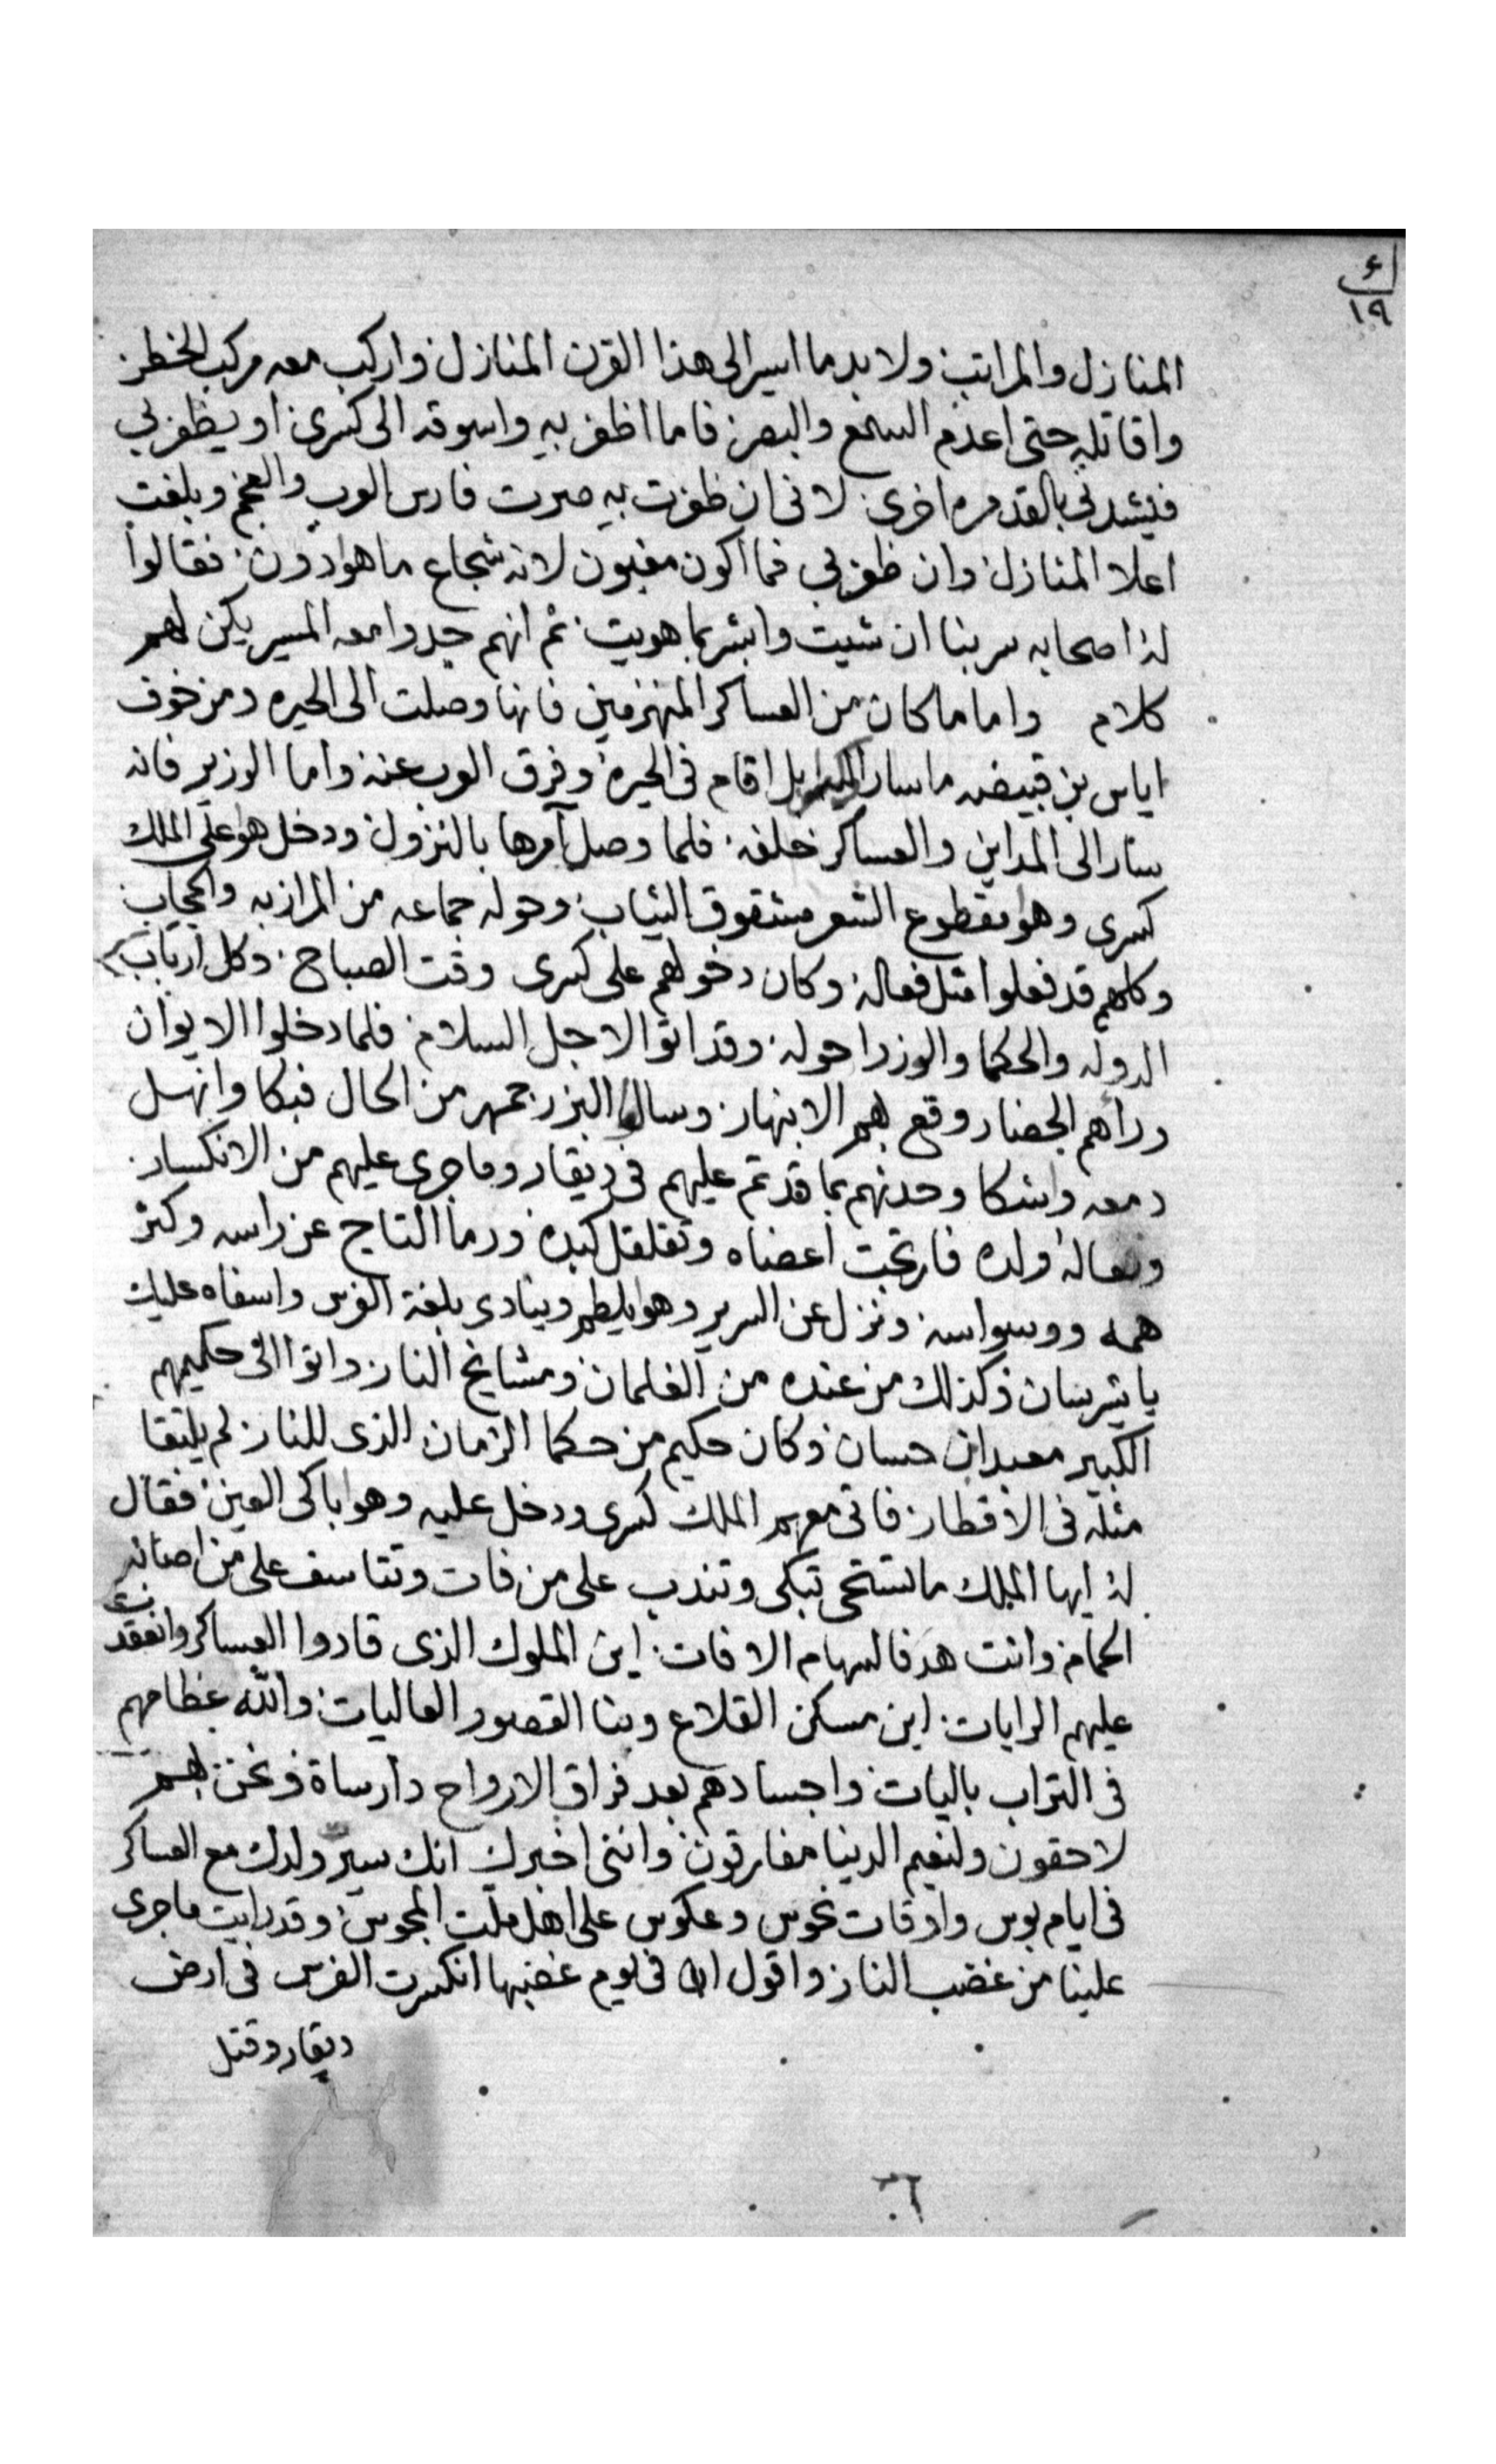 اء
١٩
المنازل والمراتب ولابد ما اسير الى هذا القرن المنازل واركب معه مركب الخطر
واقاتله حتى اعدم السمع والبصر فاما اظفر به واسوقه الى كسرى او يظفر بي
فيشدني بالقد مره اخرى لاني ان ظفرت به صرت فارس العرب والعجم وبلغت
اعلا المنازل وان ظفر بي فما اكون مغبون لانه شجاع ما هوا دون فقالوا
له اصحابه سر بنا ان شيت وابشر بما هويت ثم انهم جدوا معه المسير يكن لهم
كلام واما ما كان من العساكر المنهزمين فانها وصلت الى الحيره ومن خوف
اياس بن قبيضه ما سار بل اقام في الحيره وفرق العرب عنه واما الوزير فانه
سار الى المداين والعساكر خلفه فلما وصل آمرها بالنزول ودخل هو على الملك
كسرى وهوا مقطوع الشعر مشقوق الثياب وحوله جماعه من المرازبه والحجاب
وكلهم قد فعلوا مثل فعاله وكان دخولهم على كسرى وقت الصباح وكل ارباب
الدوله والحكما والوزرا حوله وقد اتوا لاجل السلام فلما دخلوا الايوان
وراهم الحضار وقع بهم الانبهار وساله البزرجمهر من الحال فبكا وانهل
دمعه واشكا وحدثهم بما قد تم عليهم في ديقار وما جرى عليهم من الانكسار
وفعاله ولده فارتجت اعضاه وتقلقل كبده ورما التاج عن راسه وكثر
همه ووسواسه ونزل عن السرير وهوا يلطم وينادي بلغة الفرس واسفاه عليك
يا شربسان وكذلك من عنده من الغلمان ومشايخ النار واتوا الى حكيمهم
الكبير معبدان حسان وكان حكيم من حكما الزمان الذي للنار لم يلتقا
مثله في الاقطار فاتى معهم الملك كسرى ودخل عليه وهوا باكي العين فقال
له ايها الملك ما تستحي تبكي وتندب على من فات وتتاسف على من اصابه
الحمام وانت هدفا لسهام الافات اين الملوك الذي قادوا العساكر وانعقدت
عليهم الرايات اين مسكن القلاع وبنا القصور العاليات والله عظامهم
في التراب باليات واجسادهم بعد فراق الارواح دارساة ونحن بهم
لاحقون ولنعيم الدنيا مفارقون وانني اخبرك انك سير ولدك مع العساكر
في ايام بوس واوقات نحوس وعكوس على اهل ملت المجوس وقد رايت ما جرى
علينا من غضب النار واقول ان في يوم غضبها انكسرت الفرس في ارض
ديقار وقتل